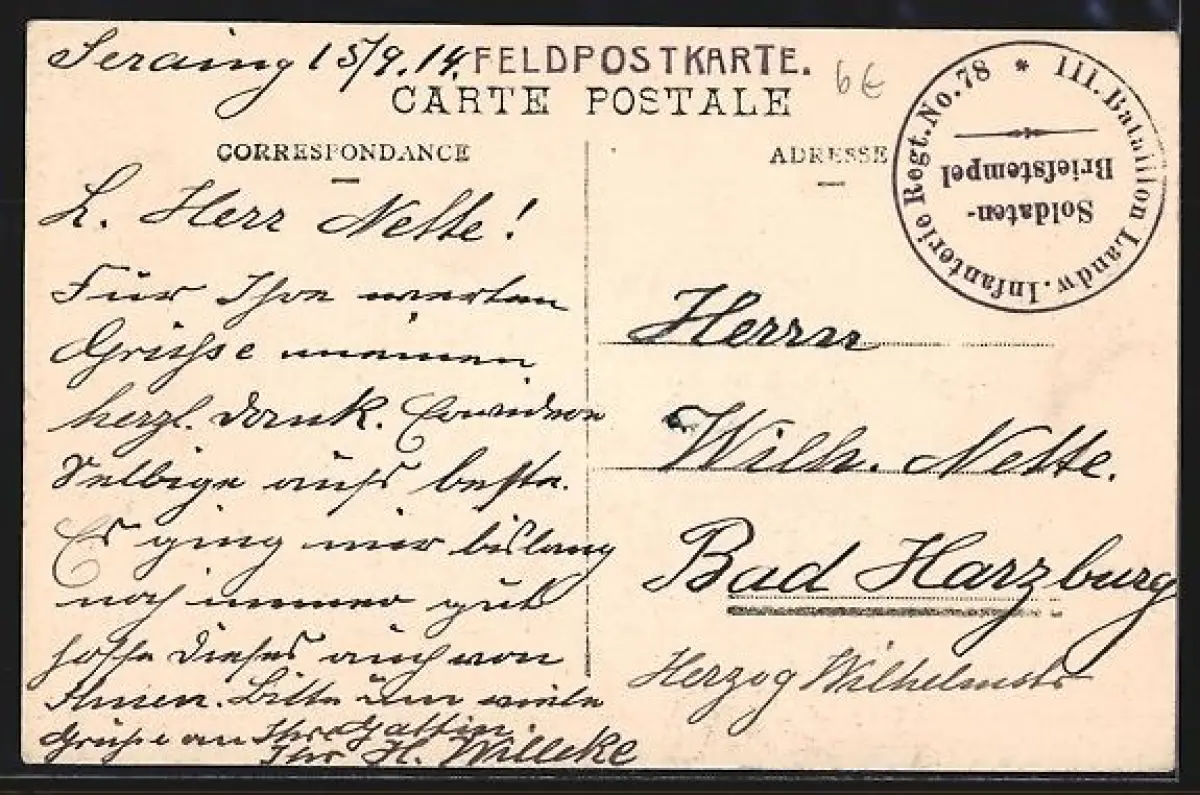 Seraing 15/9.14. FELDPOSTKARTE.
6 €
CARTE POSTALE
CORRESPONDANCE
ADRESSE
III. Bataillon Landw. Infanterie Regt. No. 78 *
Soldaten-
Briefstempel
L. Herr Nette!
Für Ihre werten
Grüsse meinen
herzl. Dank. Erwidere
Selbige aufs beste.
Es ging mir bislang
noch immer gut
hoffe dieses auch von
Ihnen. Bitte um viele
Grüße an Ihre Gattin
Ihr H. Willeke
Herrn
Wilh. Nette.
Bad Harzburg
Herzog Wilhelmstr